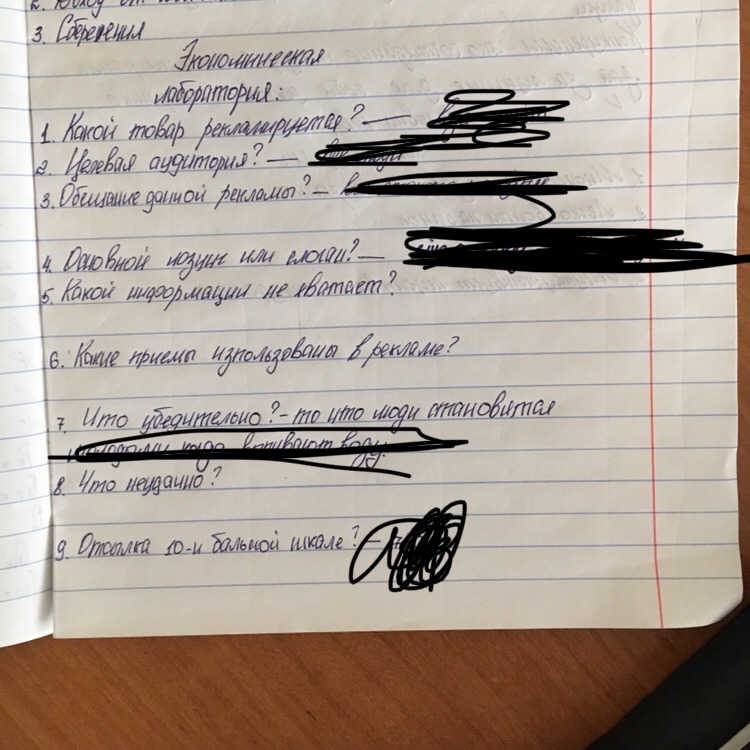 3. Сбережения
Экономическая
лаборатория:
1. Какой товар рекламируется? —
2. Целевая аудитория? —
3. Обещание данной рекламы? –
4. Основной лозунг или слоган? —
5. Какой информации не хватает?
6. Какие приемы изпользованы в рекламе?
7. Что убедительно? – то что люди становятся
8. Что неудачно?
9. Отсылка 10-и бальной шкале? –